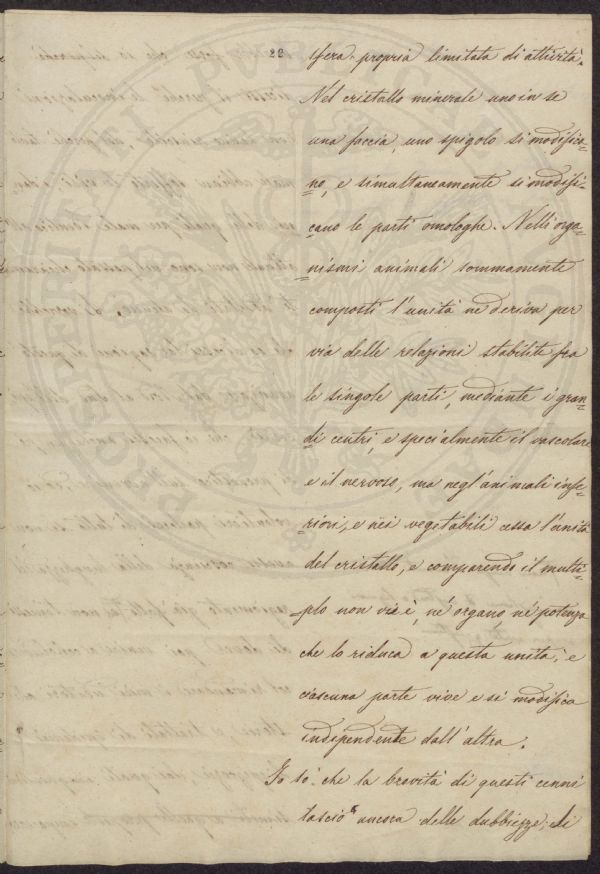 28
sfera propria limitata di attività.
Nel cristallo minerale uno in se
una faccia, uno spigolo si modifica-
no, e simultaneamente si modifi-
cano le parti omologhe. Nelli orga-
nismi animali sommamente
composti l'unità ne deriva per
via delle relazioni stabilite fra
le singole parti, mediante i gran-
di centri, e specialmente il vascolare
e il nervoso, ma negl'animali infe-
riori, e nei vegetabili cessa l'unità
del cristallo, e comparendo il multi-
plo non vi è, nè organo, nè potenza
che lo riduca a questa unità, e
ciascuna parte vive e si modifica
independente dall'altra.
Io sò che la brevità di questi cenni
lasciò ancora delle dubbiezze; di